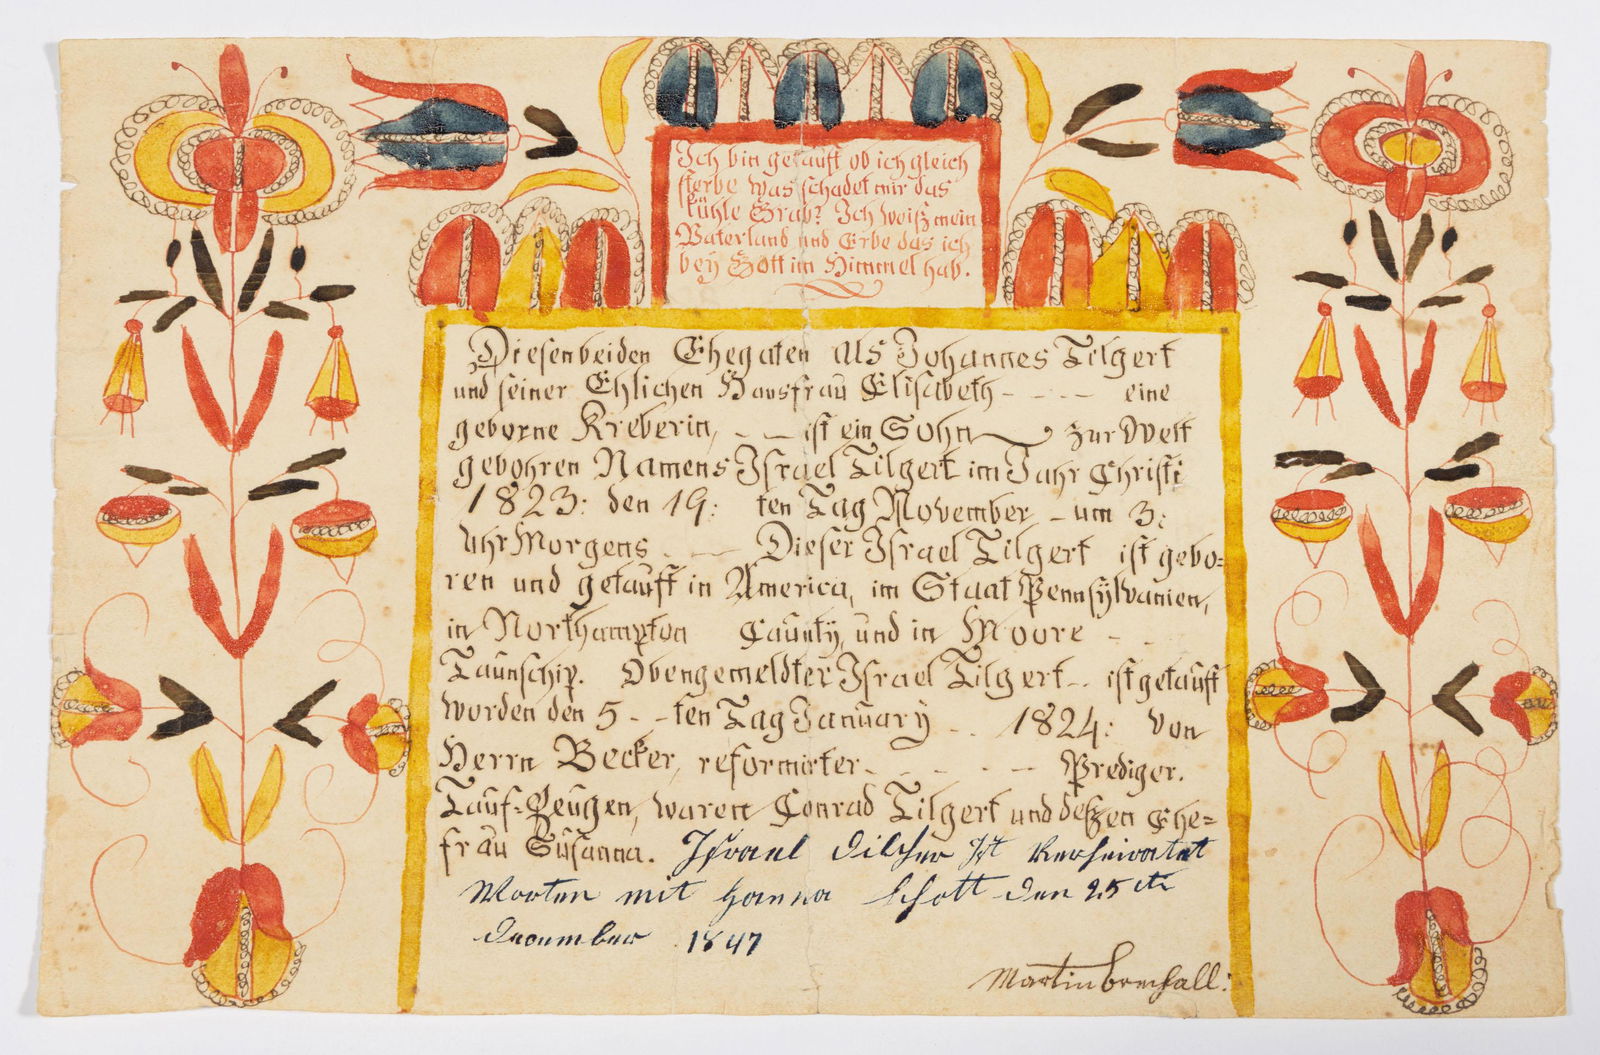 Ich bin getauft ob ich gleich
sterbe was schadet mir das
kühle Grab? Ich weiß mein
Vaterland und Erbe das ich
bey Gott im Himmel hab.
Diesen beiden Ehegaten als Johannes Tilgert
und seiner Ehlichen Hausfrau Elisabeth - - - - eine
geborne Kreberin, - - ist ein Sohn zur Welt
gebohren Namens Israel Tilgert im Jahr Christi
1823: den 19: ten Tag November - um 3:
Uhr Morgens - - Dieser Israel Tilgert ist gebo=
ren und getauft in America, im Staat Pennsylvanien,
in Northampton Caunty, und in Moore - -
Taunschip. Obengemeldter Israel Tilgert - - ist getauft
worden den 5 - - ten Tag January - - 1824: von
Herrn Becker, reformirter - - - - - Prediger.
Tauf-Zeugen, waren Conrad Tilgert und deßen Ehe=
frau Susanna. Israel Dilcher Ist Verheiratet
Worten mit Hanna Schott den 25 ten
December 1847
Martin brechall: